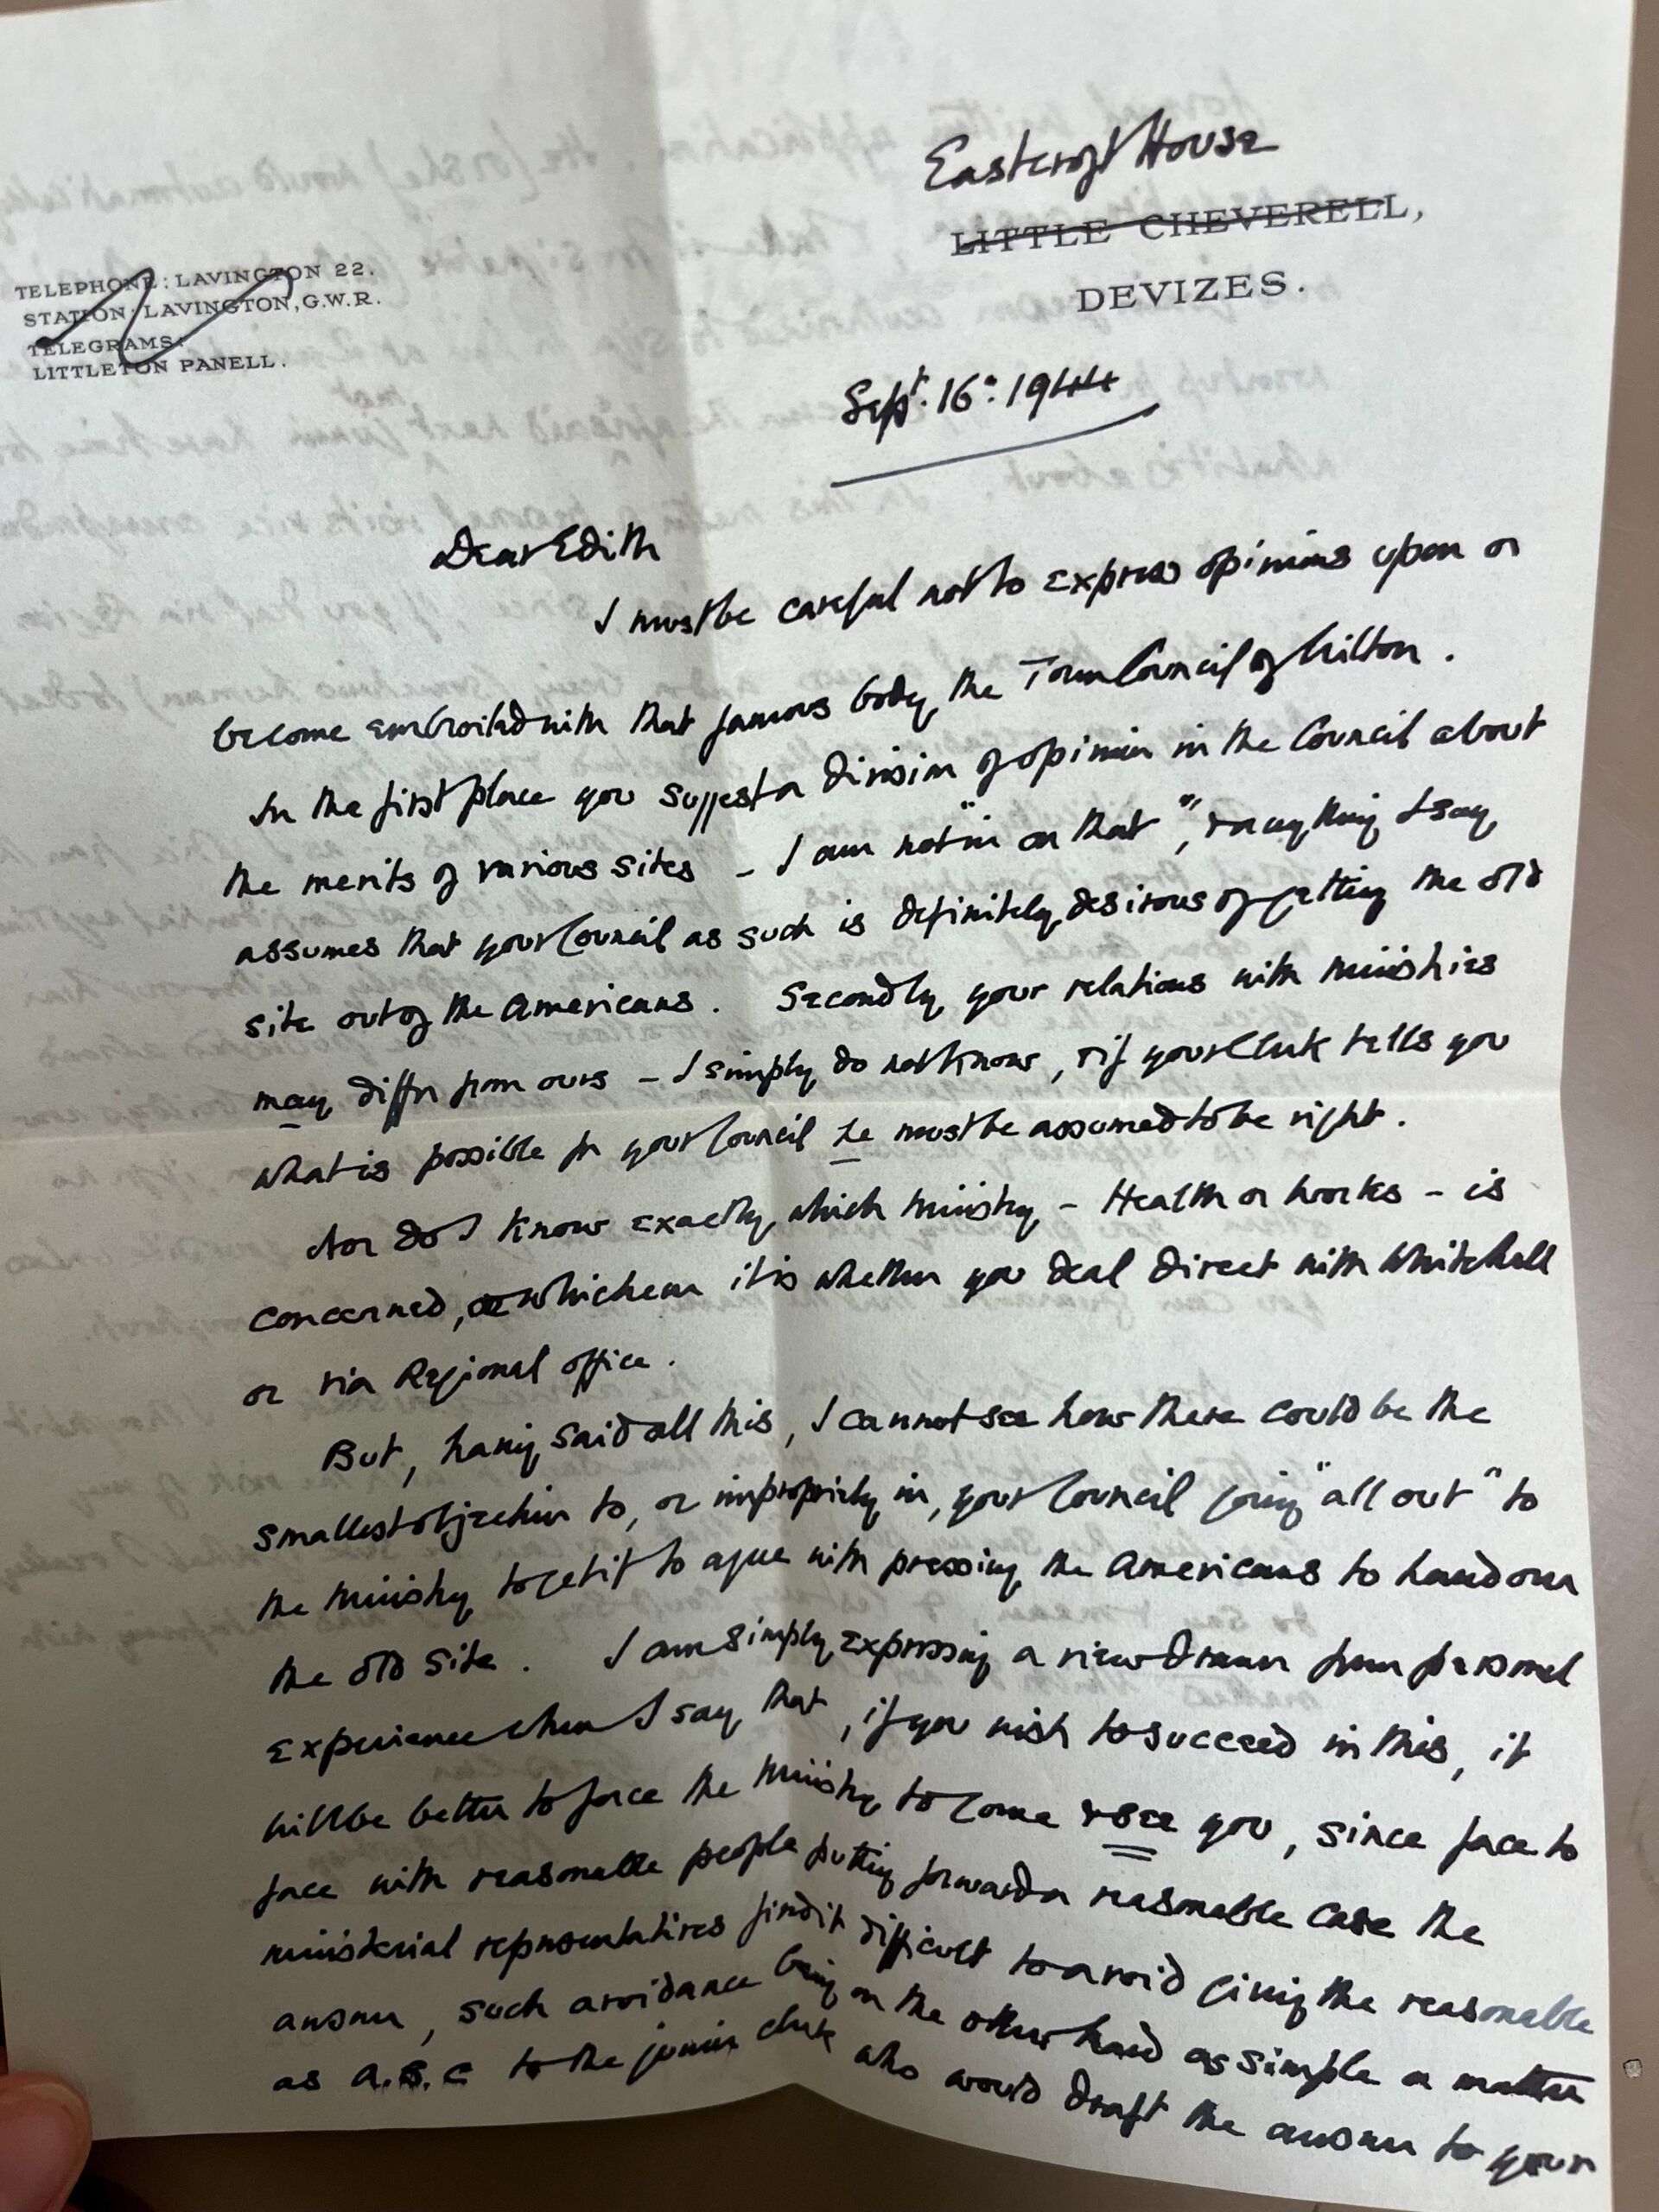 Eastcroft House
LITTLE CHEVERELL,
DEVIZES.
TELEPHONE: LAVINGTON 22.
STATION: LAVINGTON, G.W.R.
TELEGRAMS:
LITTLETON PANELL.
Sept. 16th 1944
Dear Edith
I must be careful not to express opinions upon or
become embroiled with that famous body, the Town Council of Wilton.
In the first place you suggest a division of opinion in the Council about
the merits of various sites - I am not "in on that", & anything I say
assumes that your Council as such is definitely desirous of getting the old
site out of the Americans. Secondly, your relations with Ministries
may differ from ours - I simply do not know, & if your Clerk tells you
what is possible for your Council he must be assumed to be right.
Nor do I know exactly which Ministry - Health or Works - is
concerned, or whichever it is whether you deal direct with Whitehall
or via Regional office.
But, having said all this, I cannot see how there could be the
smallest objection to, or impropriety in, your Council going "all out" to
the Ministry to get it to agree with pressing the Americans to hand over
the old site. I am simply expressing a view drawn from personal
experience when I say that, if you wish to succeed in this, it
will be better to force the Ministry to come & see you, since face to
face with reasonable people putting forward a reasonable case the
ministerial representatives find it difficult to avoid giving the reasonable
answer, such avoidance being on the other hand as simple a matter
as A.B.C to the junior clerk who would draft the answer to your